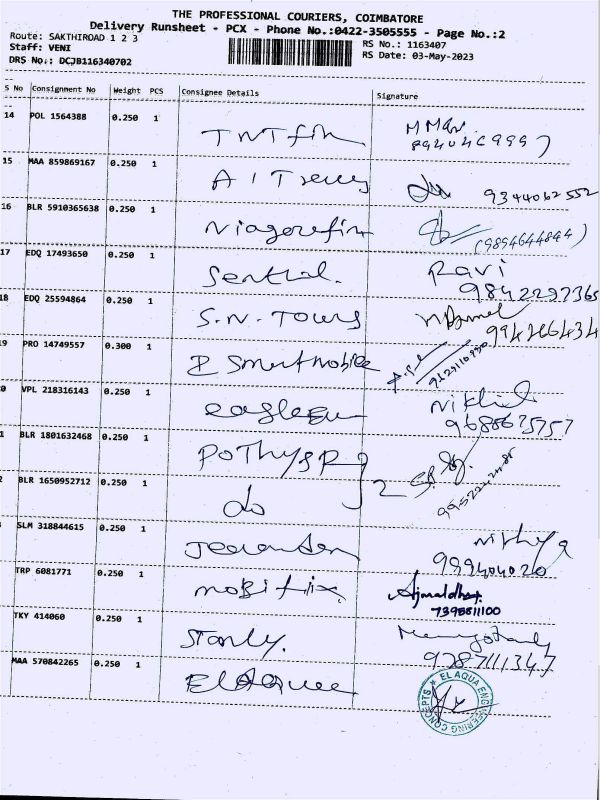 THE PROFESSIONAL COURIERS, COIMBATORE
Delivery Runsheet - PCX - Phone No.:0422-3505555 - Page No.:2
Route: SAKTHIROAD 1 2 3
RS No.: 1163407
Staff: VENI
RS Date: 03-May-2023
DRS No.: DCJB116340702
S No Consignment No Weight PCS Consignee Details Signature
14 POL 1564388 0.250 1 TNT fin
15 MAA 859869167 0.250 1 A I 9344062552
16 BLR 5910365638 0.250 1 Niagerefin (9894644844)
17 EDQ 17493650 0.250 1 Senthil. Ravi
9842297365
18 EDQ 25594864 0.250 1 S.N. TOURS
994266434
9 PRO 14749557 0.300 1 I Smart mobile
0 VPL 218316143 0.250 1 Nikhil
9688675757
1 BLR 1801632468 0.250 1 POTHYS R
BLR 1650952712 0.250 1 do 2
SLM 318844615 0.250 1 Nithya
999404020
TRP 6081771 0.250 1 mobifix Ajmaldhas
7395811100
TKY 414060 0.250 1 Stanly.
9287111347
MAA 570842265 0.250 1 El Aquee
EL AQUA ENGINEERING CONCEPTS